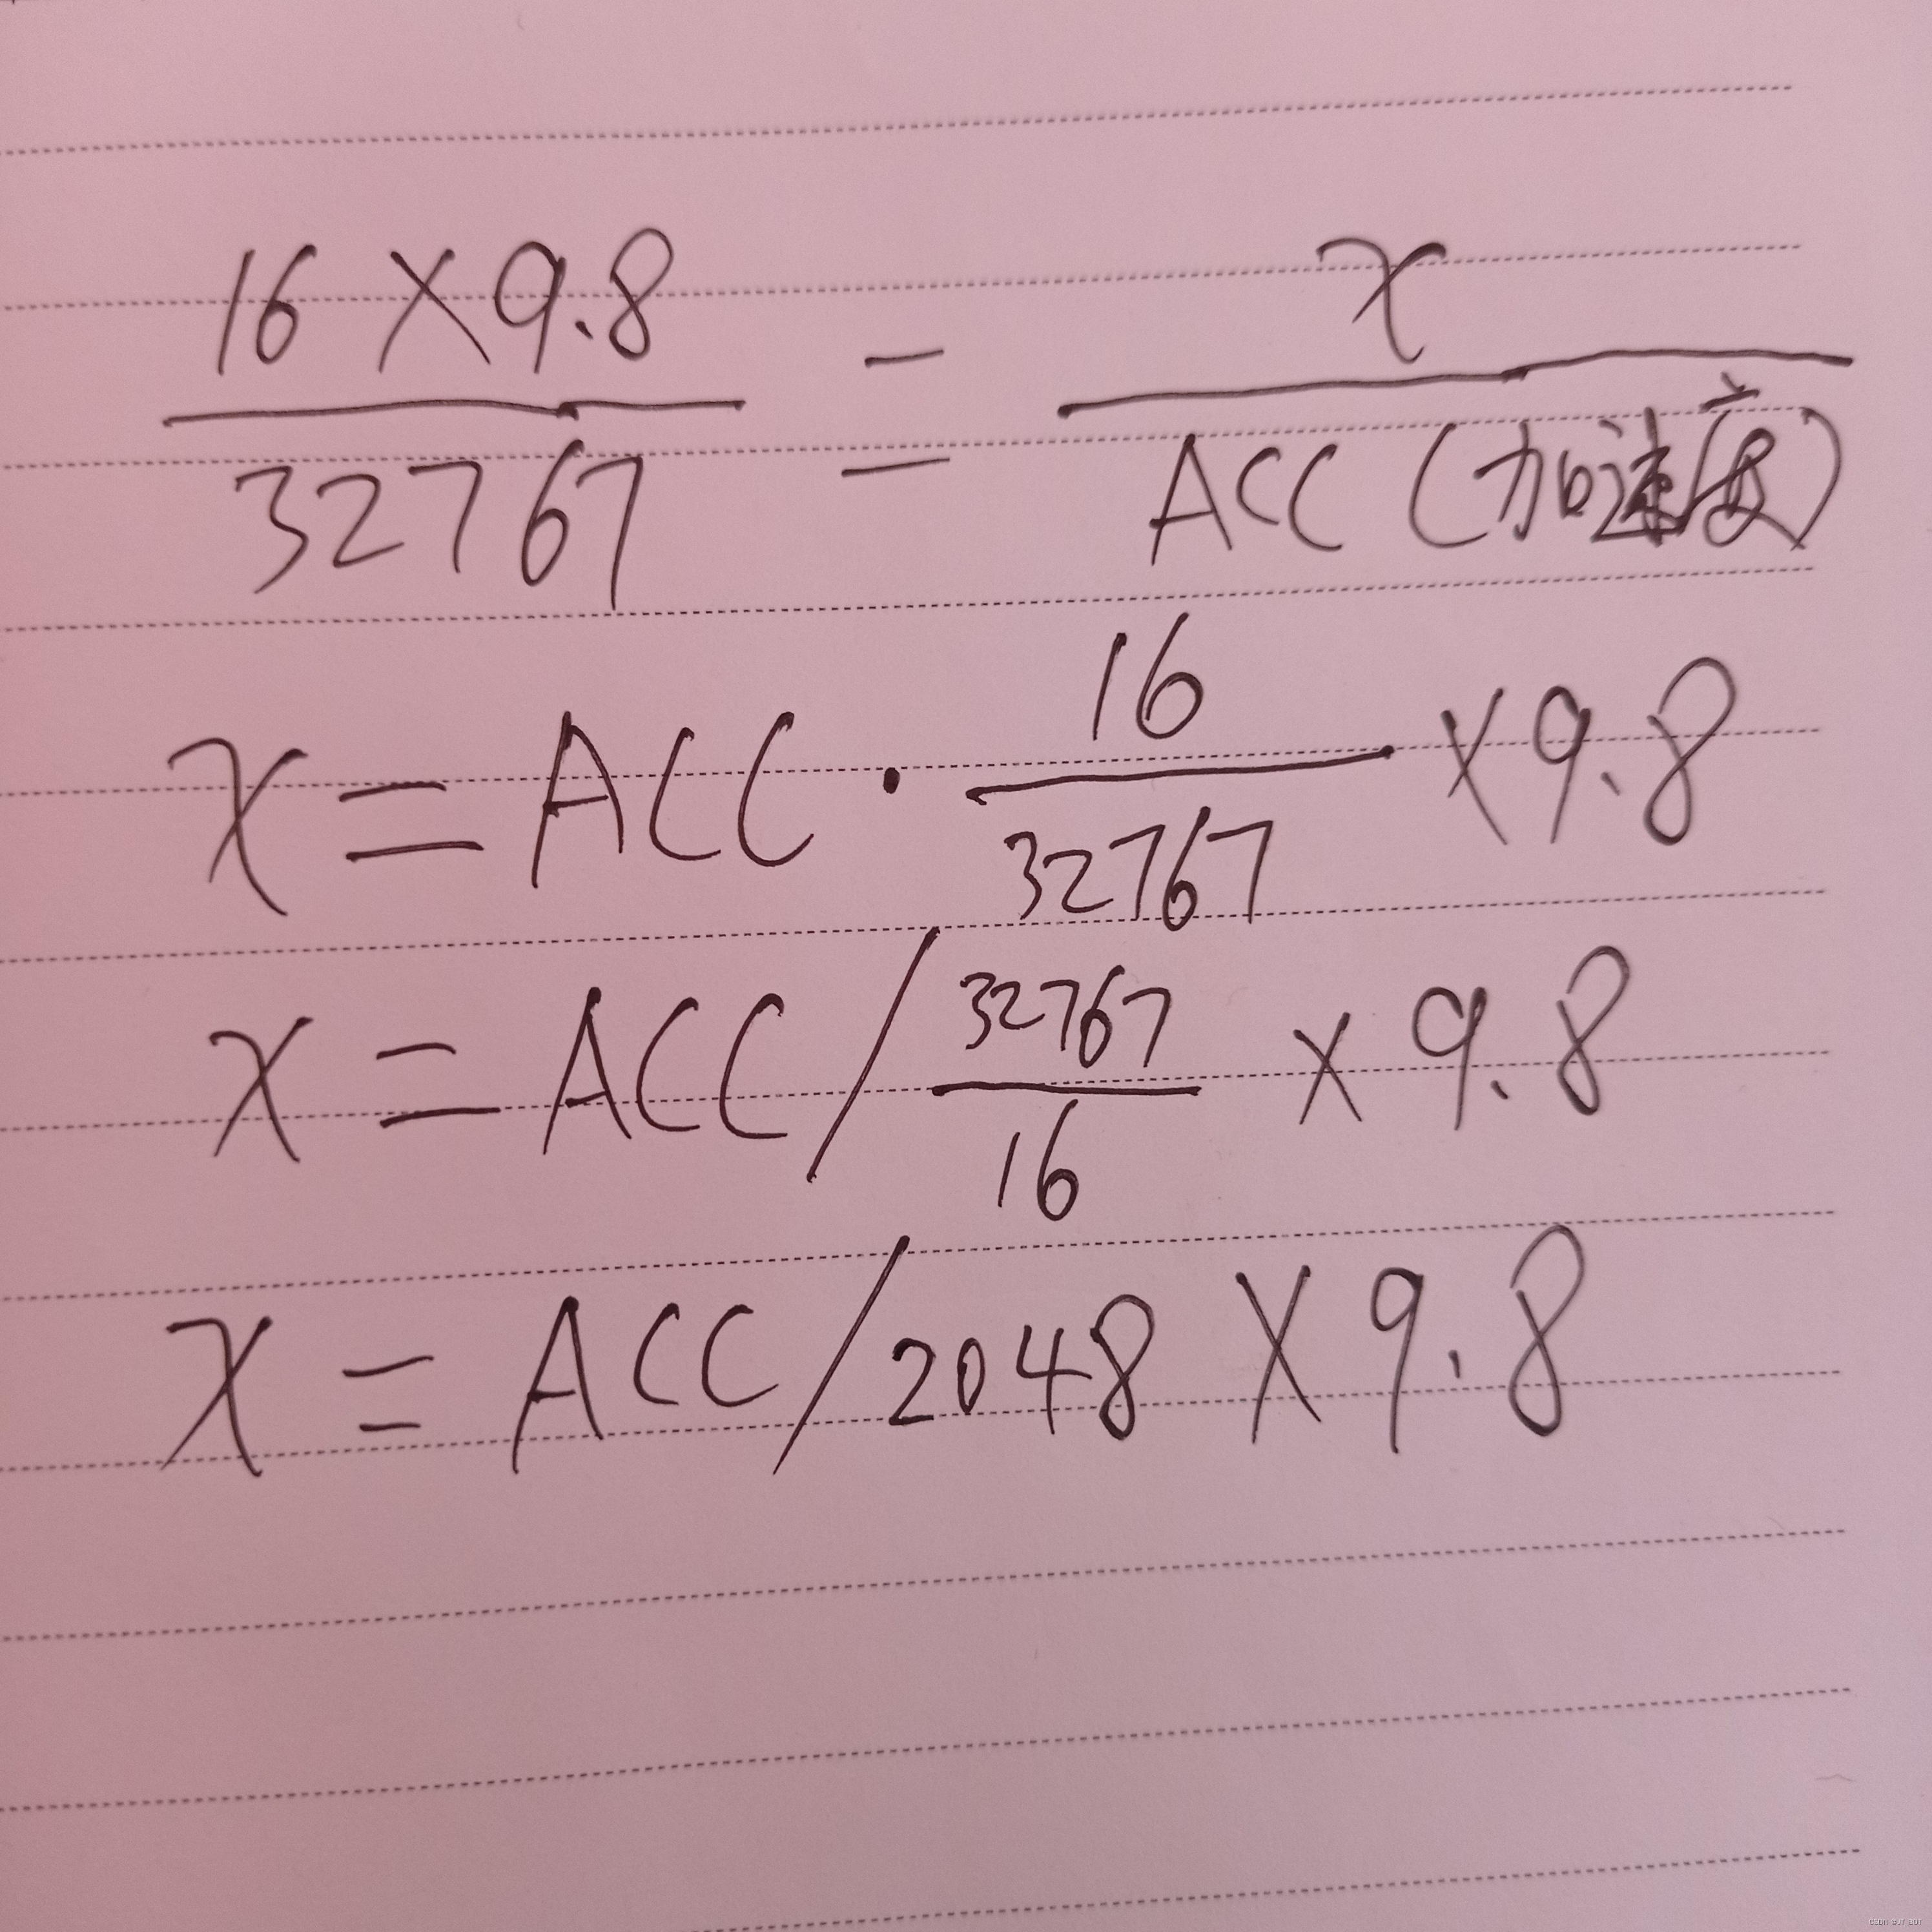 16 × 9.8 / 32767 = x / ACC (加速度)
x = ACC · 16 / 32767 × 9.8
x = ACC / 32767 / 16 × 9.8
x = ACC / 2048 × 9.8
CSDN @JT_BOT